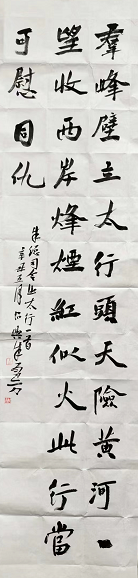 羣峰壁立太行頭天險黃河一
望收两岸烽煙紅似火此行當
可慰同仇
朱總司令出太行一首
辛丑五月